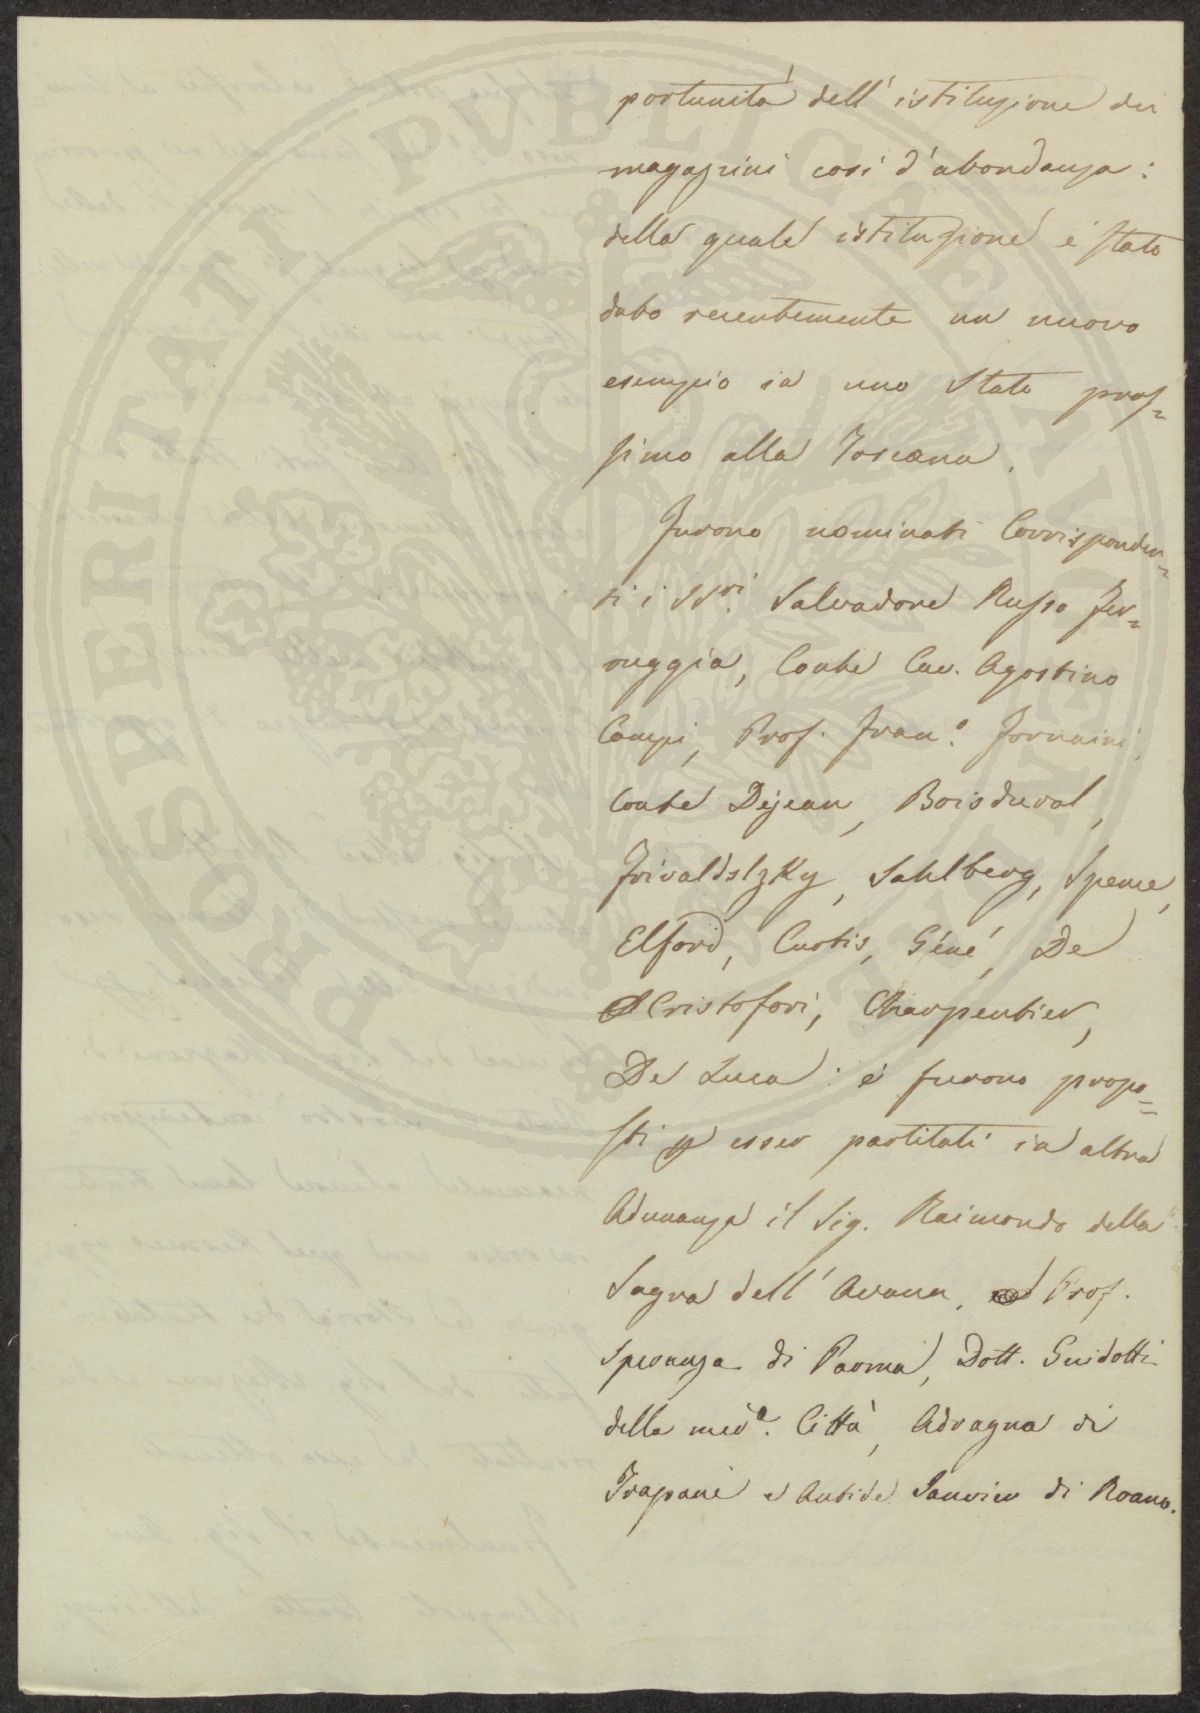 portunità dell'istituzione dei
magazzini così d'abondanza:
della quale istituzione è stato
dato recentemente un nuovo
esempio in uno Stato pros=
simo alla Toscana.
Furono nominati Corrisponden=
ti i SSri. Salvadore Russo Fer=
ruggia, Conte Cav. Agostino
Campi, Prof. Fran.o Fornaini
Conte Dejean, Boisduval,
Frivaldslzky, Sahlberg, Spence,
Elford, Curtis, Géné, De
Cristofori, Charpentier,
De Luca: e furono propo=
sti p esser partitati in altra
Adunanza il Sig. Raimondo della
Sagra dell'Avana, Prof.
Speranza di Parma, Dott. Guidotti
della med.a Città, Adragna di
Trapani e Antide Janvier di Roano.
PROSPERITATI PUBLICAE AUGENDAE